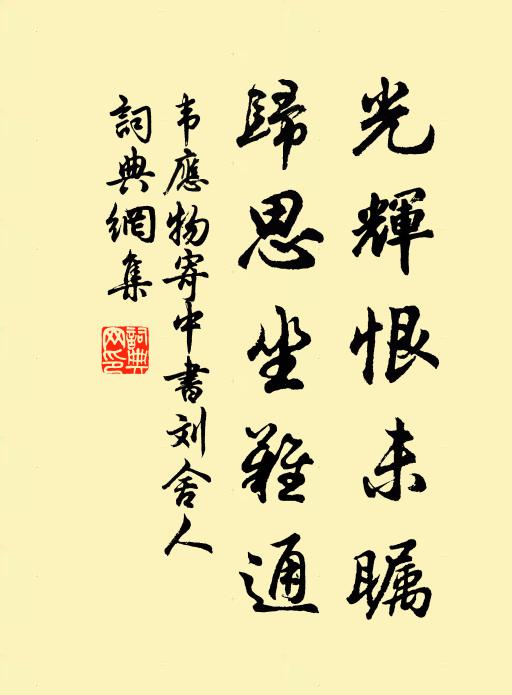 光輝恨未瞩
歸思坐難通
韦應物寄中書刘舍人
詞典網集
詞典
网印